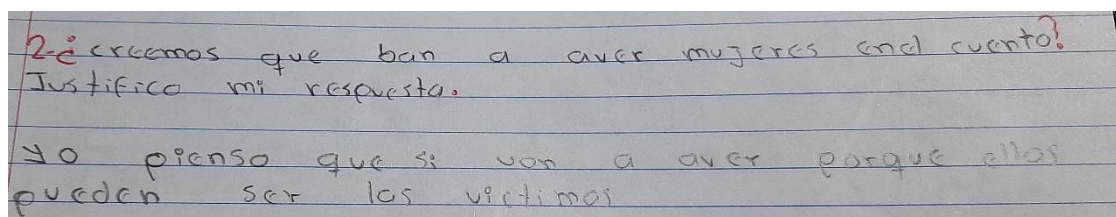 2-¿creemos que ban a aver mujeres enel cuento?
Justifico mi respuesta.
yo pienso que si von a aver porque ellas
pueden ser las victimas